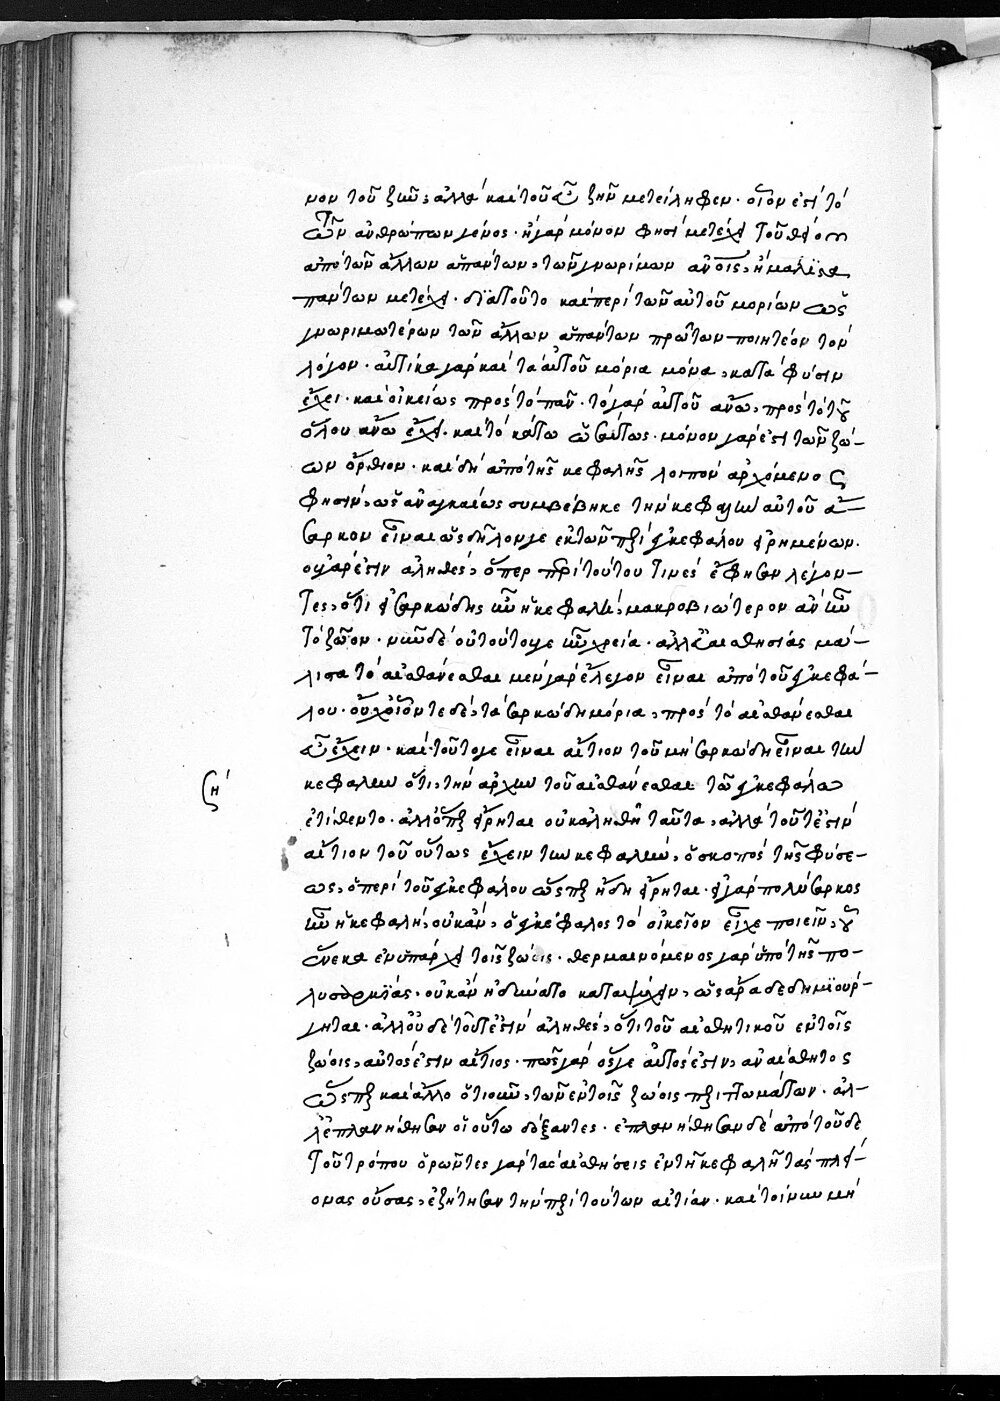 μον τοῦ ζῶν, ἀλλὰ καὶ τοῦ εὖ ζῆν μετείληφεν. οἷον ἐστὶ τὸ
τῶν ἀνθρώπων γένος. ἢ γὰρ μόνον φησὶ μετέχει τοῦ θείου
ἀπὸ τῶν ἄλλων ἁπάντων, τῶν γνωρίμων ἡμῖν, ἢ μάλιστα
πάντων μετέχει. διὰ τοῦτο καὶ περὶ τῶν αὐτοῦ μορίων ὡς
γνωριμωτέρων τῶν ἄλλων ἁπάντων πρῶτον ποιητέον τὸν
λόγον. αὐτίκα γὰρ καὶ τὰ αὐτοῦ μόρια μόνα, κατὰ φύσιν
ἔχει. καὶ οἰκείως πρὸς τὸ πᾶν. τὸ γὰρ αὐτοῦ ἄνω, πρὸς τὸ τοῦ
ὅλου ἄνω ἔχει. καὶ τὸ κάτω ὡσαύτως. μόνον γάρ ἐστι τῶν ζώ-
ων ὄρθιον. καὶ δὴ ἀπὸ τῆς κεφαλῆς λοιπὸν ἀρχόμενος
φησὶν, ὡς ἀναγκαίως συμβέβηκε τὴν κεφαλὴν αὐτοῦ ἄ-
σαρκον εἶναι ὡς δῆλον γε ἐκ τῶν περὶ ἐγκεφάλου εἰρημένων.
οὐ γάρ ἐστιν ἀληθὲς, ὅπερ περὶ τούτου τινὲς ἔφησαν λέγον-
τες, ὅτι εἰ σαρκώδης ἦν ἡ κεφαλὴ, μακροβιώτερον ἂν ἦν
τὸ ζῶον. νῦν δὲ οὐ τοῦτό γε ἦν χρεία. ἀλλ' εὐαισθησίας μά-
λιστα τὸ αἰσθάνεσθαι μὲν γὰρ ἔλεγον εἶναι ἀπὸ τοῦ ἐγκεφά-
λου. οὐχ οἷόν τε δὲ, τὰ σαρκώδη μόρια, πρὸς τὸ αἰσθάνεσθαι
εὖ ἔχειν. καὶ τοῦτό γε εἶναι αἴτιον τοῦ μὴ σαρκώδη εἶναι τὴν
κεφαλὴν ὅτι, τὴν ἀρχὴν τοῦ αἰσθάνεσθαι τῶ ἐγκεφάλω
ἐτίθεντο. ἀλλ' ὅπερ εἴρηται οὐκ ἀληθῆ ταῦτα, ἀλλὰ τοῦτ' ἐστὶν
αἴτιον τοῦ οὕτως ἔχειν τὴν κεφαλὴν, ὁ σκοπὸς τῆς φύσε-
ως, ὁ περὶ τοῦ ἐγκεφάλου ὥσπερ ἤδη εἴρηται. εἰ γὰρ πολύσαρκος
ἦν ἡ κεφαλὴ, οὐκ ἂν, ὁ ἐγκέφαλος τὸ οἰκεῖον εἶχε ποιεῖν, οὗ
ἕνεκα ἐνυπάρχει τοῖς ζώοις. θερμαινόμενος γὰρ ὑπὸ τῆς πο-
λυσαρκίας. οὐκ ἂν ἠδύνατο καταψύχειν, ὡς ἄρα δεδημιούρ-
γηται. ἀλλ' οὐδὲ τοῦτ' ἐστὶν ἀληθὲς, ὅτι τοῦ αἰσθητικοῦ ἐν τοῖς
ζώοις, αὐτός ἐστιν αἴτιος. πῶς γὰρ ὅς γε αὐτός ἐστιν, ἀναίσθητος
ὥσπερ καὶ ἄλλο ὁτιοῦν, τῶν ἐν τοῖς ζώοις περιττωμάτων. ἀλ-
λ' ἐπλανήθησαν οἱ οὕτω δόξαντες. ἐπλανήθησαν δὲ ἀπὸ τοῦδε
τοῦ τρόπου ὁρῶντες γὰρ τὰς αἰσθήσεις ἐν τῆ κεφαλῆ τὰς πλεί-
ονας οὔσας, ἐζήτησαν τὴν περὶ τούτων αἰτίαν. καὶ τοίνυν μὴ
ζή